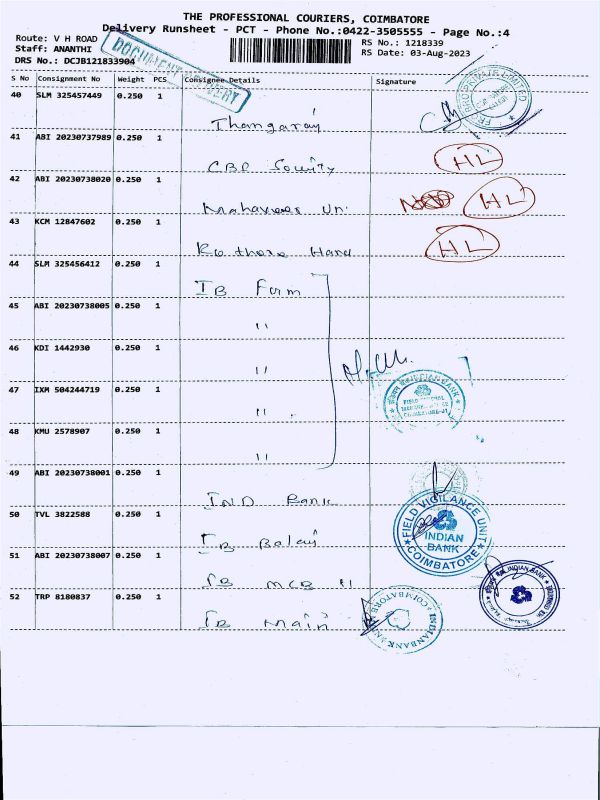 THE PROFESSIONAL COURIERS, COIMBATORE
Delivery Runsheet - PCT - Phone No.:0422-3505555 - Page No.:4
Route: V H ROAD
RS No.: 1218339
Staff: ANANTHI
RS Date: 03-Aug-2023
DRS No.: DCJB121833904
DOCUMENT DELIVERY
S No Consignment No Weight PCS Consignee Details Signature
40 SLM 325457449 0.250 1
Thangaraj
41 ABI 20230737989 0.250 1
CBD HL
42 ABI 20230738020 0.250 1
Mahaveer Un. HL
43 KCM 12847602 0.250 1
HL
44 SLM 325456412 0.250 1
IB Form
45 ABI 20230738005 0.250 1
"
46 KDI 1442930 0.250 1
"
47 IXM 504244719 0.250 1
"
INDIAN BANK
48 KMU 2578907 0.250 1
"
49 ABI 20230738001 0.250 1
IND Bank
50 TVL 3822588 0.250 1
IB
FIELD VIGILANCE UNIT
INDIAN BANK
COIMBATORE
51 ABI 20230738007 0.250 1
IB MCB 11
INDIAN BANK
52 TRP 8180837 0.250 1
IB Main
INDIANBANK COIMBATORE